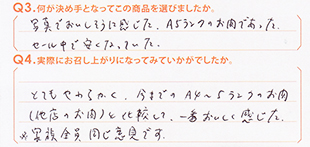 Q3.何が決め手となってこの商品を選びましたか。
写真でおいしそうに感じた。A5ランクのお肉であった。
セール中で安くなっていた。
Q4.実際にお召し上がりになってみていかがでしたか。
とてもやわらかく、今までのA4~5ランクのお肉
(他店のお肉)と比較して、一番おいしく感じた。
※家族全員同じ意見です。